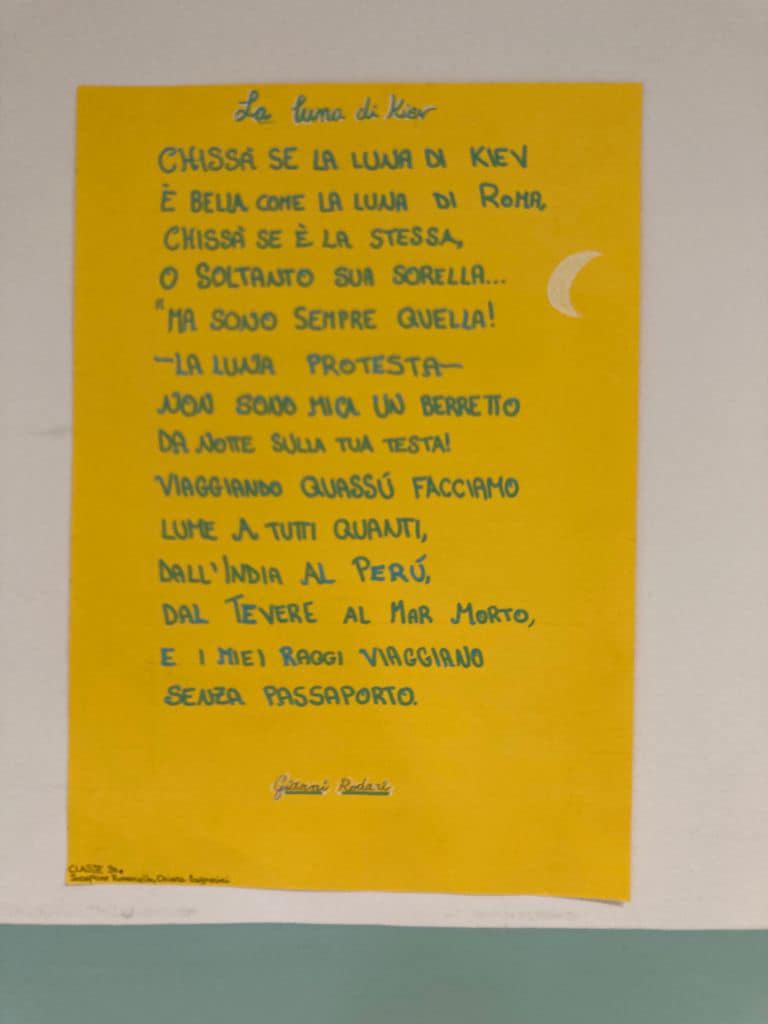 La luna di Kiev
CHISSÀ SE LA LUNA DI KIEV
È BELLA COME LA LUNA DI ROMA,
CHISSÀ SE È LA STESSA,
O SOLTANTO SUA SORELLA...
"MA SONO SEMPRE QUELLA!
-LA LUNA PROTESTA-
NON SONO MICA UN BERRETTO
DA NOTTE SULLA TUA TESTA!
VIAGGIANDO QUASSÚ FACCIAMO
LUME A TUTTI QUANTI,
DALL'INDIA AL PERÚ,
DAL TEVERE AL MAR MORTO,
E I MIEI RAGGI VIAGGIANO
SENZA PASSAPORTO.
Gianni Rodari
CLASSE
Chiara